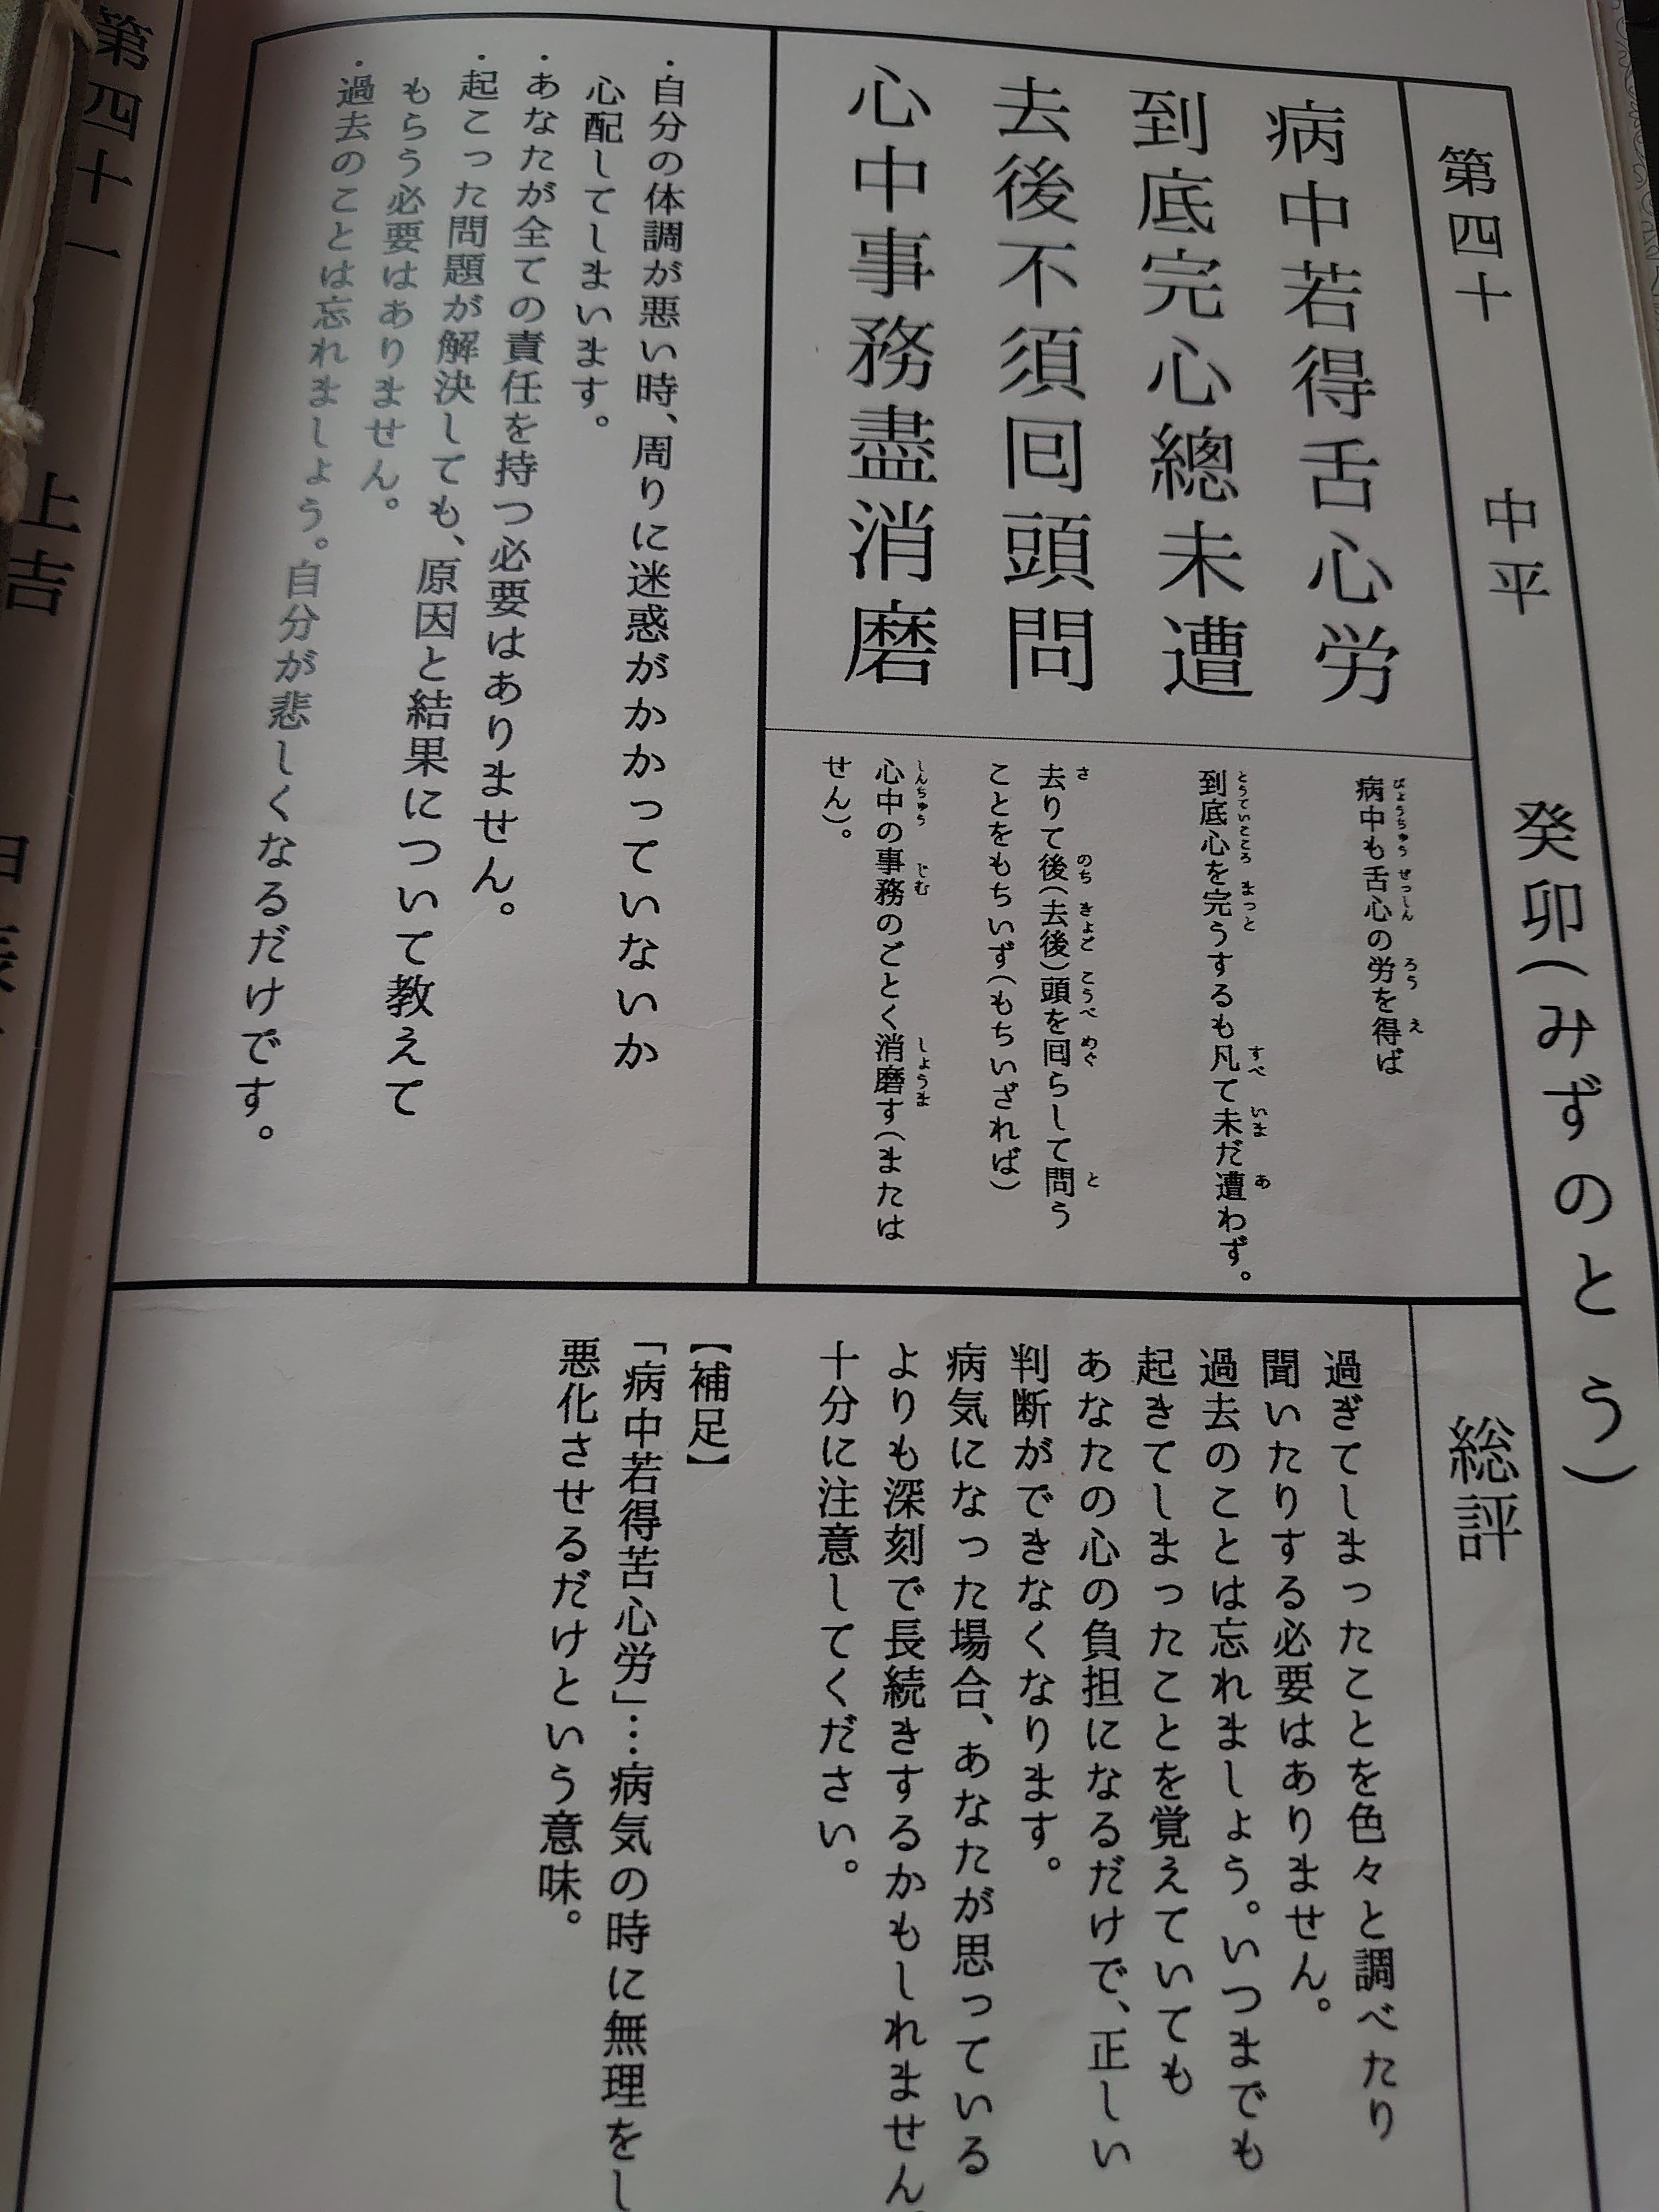 第四十 中平 癸卯(みずのとう)
病中若得舌心労
到底完心總未遭
去後不須回頭問
心中事務盡消磨
病中も舌心の労を得ば
びょうちゅう ぜっしん ろう え
到底心を完うするも凡て未だ遭わず。
とうていこころ まっと すべ いま あ
去りて後(去後)頭を回らして問う
さ のち きょご こうべ めぐ と
ことをもちいず(もちいざれば)
心中の事務のごとく消磨す(または
しんちゅう じむ しょうま
せん)。
・自分の体調が悪い時、周りに迷惑がかかっていないか
心配してしまいます。
・あなたが全ての責任を持つ必要はありません。
・起こった問題が解決しても、原因と結果について教えて
もらう必要はありません。
・過去のことは忘れましょう。自分が悲しくなるだけです。
総評
過ぎてしまったことを色々と調べたり
聞いたりする必要はありません。
過去のことは忘れましょう。いつまでも
起きてしまったことを覚えていても
あなたの心の負担になるだけで、正しい
判断ができなくなります。
病気になった場合、あなたが思っている
よりも深刻で長続きするかもしれません。
十分に注意してください。
【補足】
「病中若得苦心労」…病気の時に無理をし
悪化させるだけという意味。
第四十一 上吉